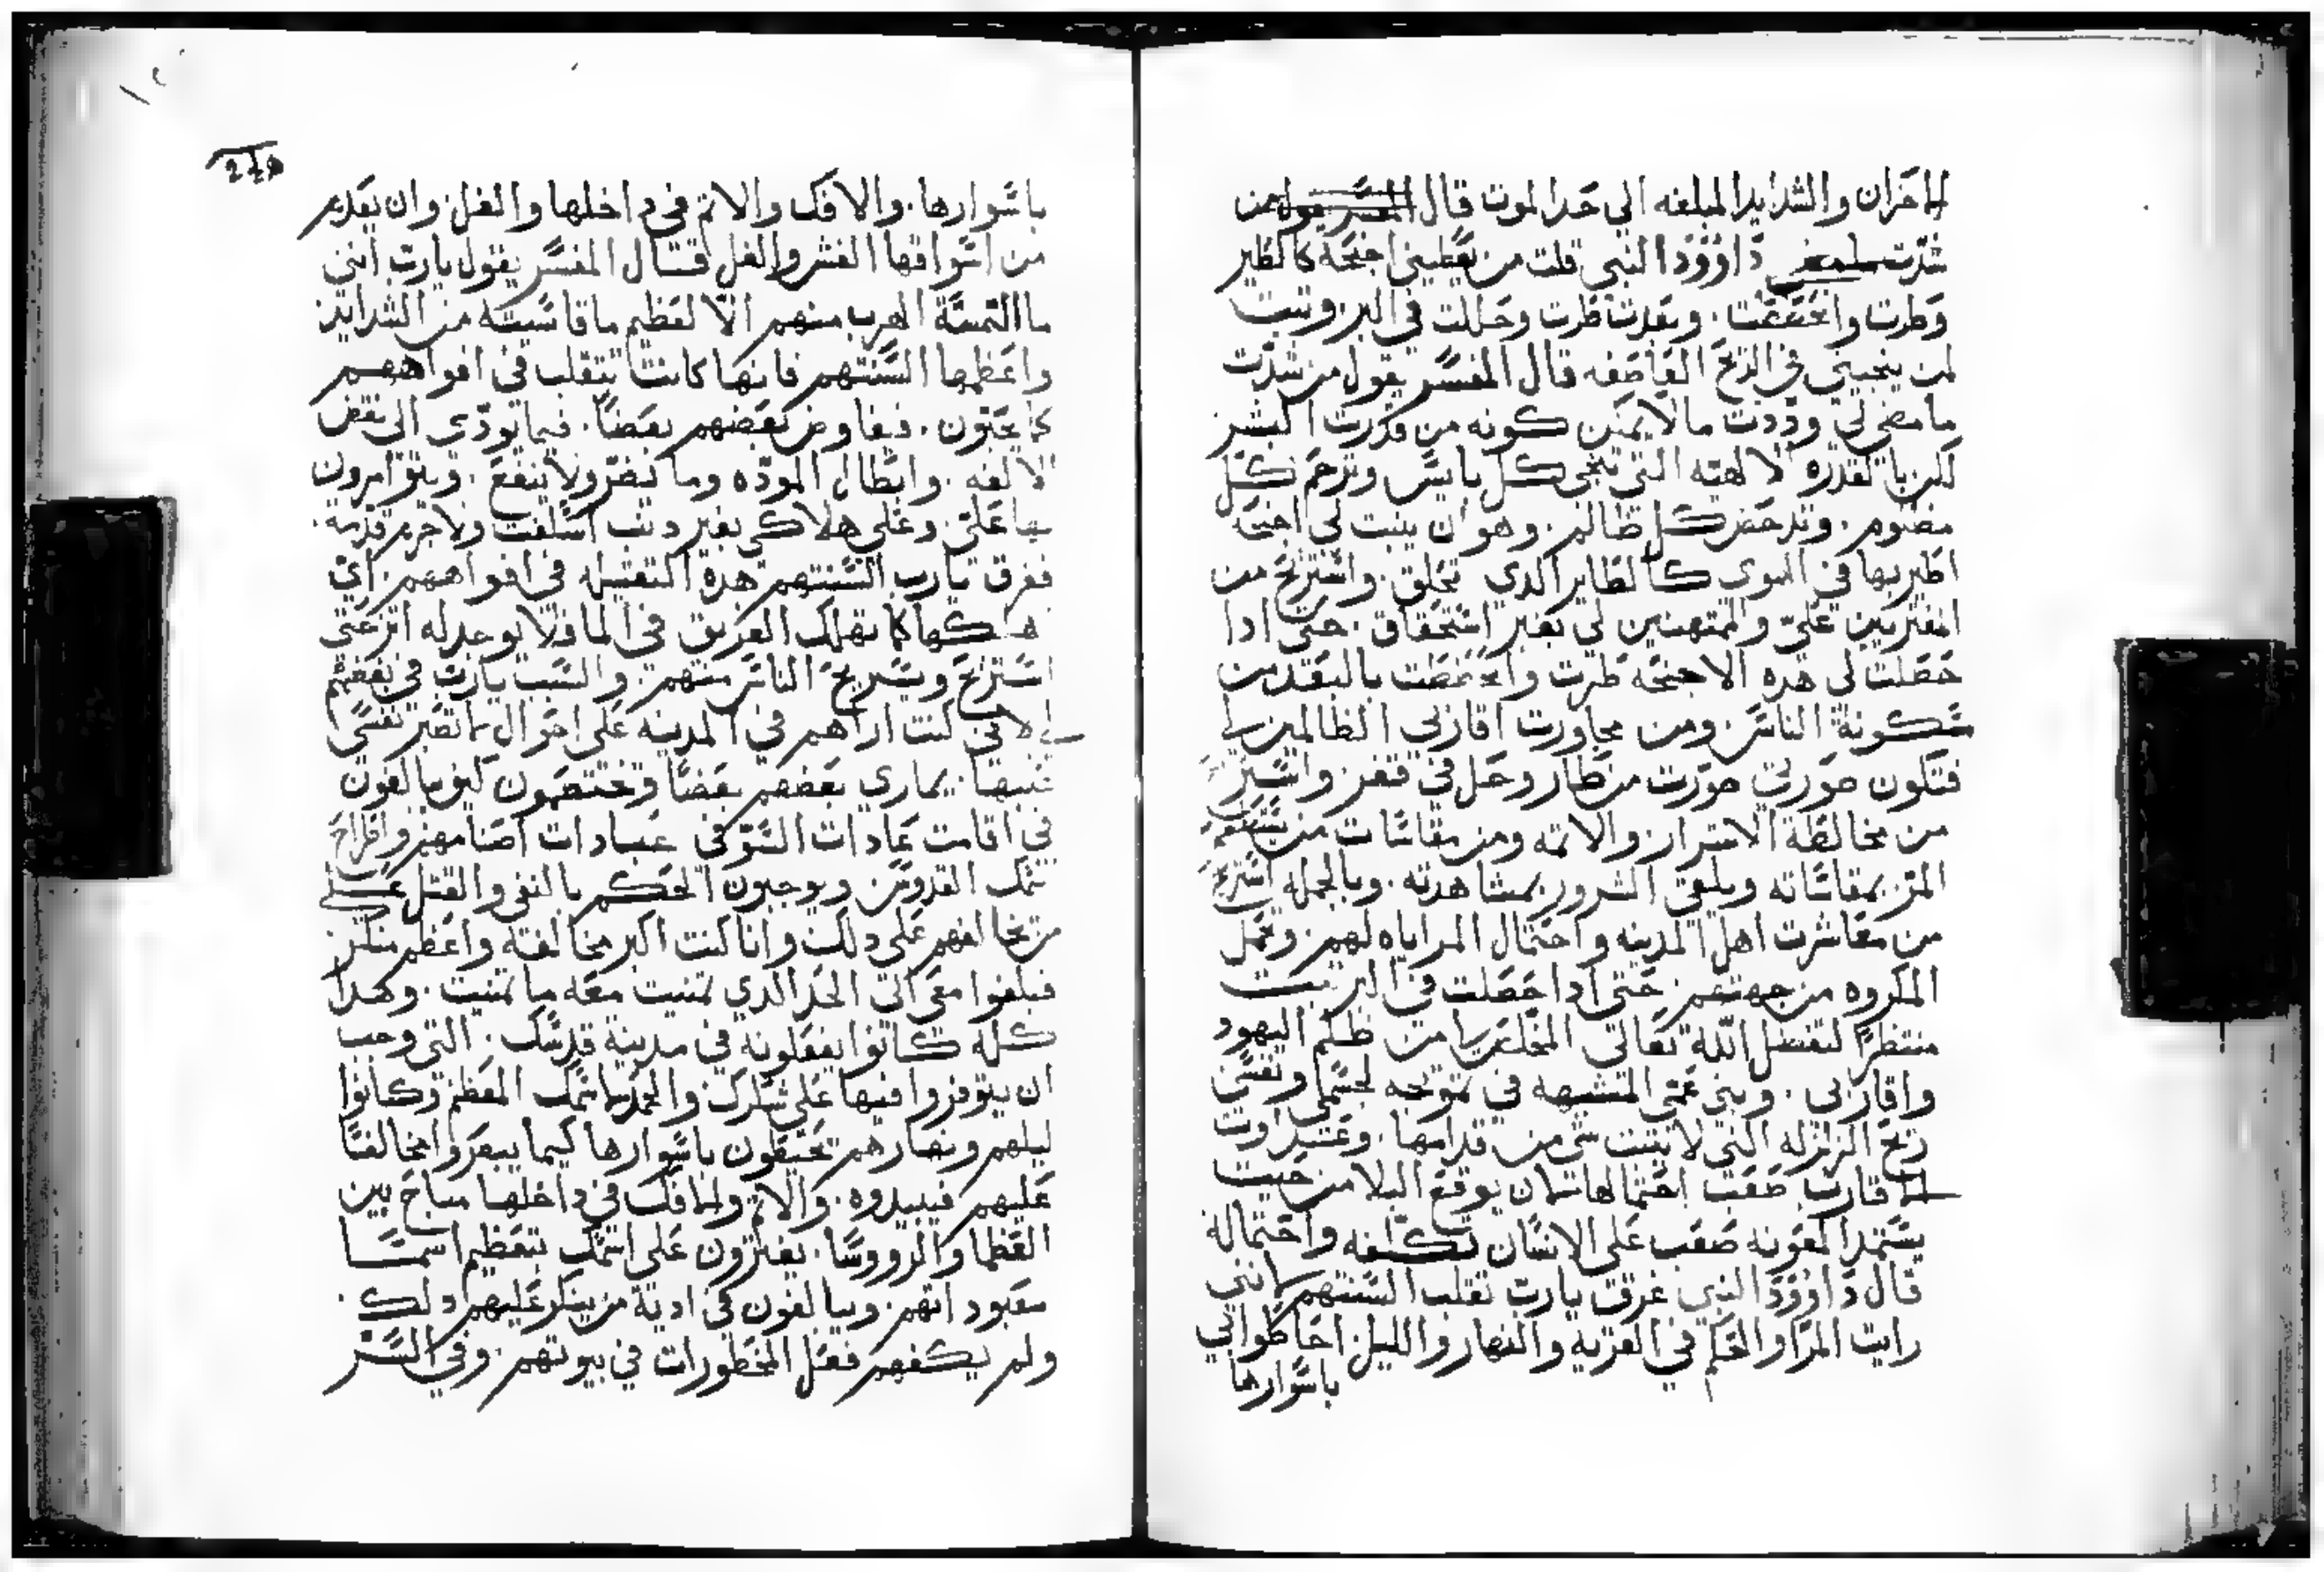 الاحزان والشدايد المبلغه الي حد الموت قال المفسر يقول من
شدت داوود النبي قلت من يعطيني اجنحة كالطير
وطرت وانخفضت. وبعدت طرت وحللت في البر وتبت
لمن ينجيني في الريح العاصفه قال المفسر يقول من شدت
ما مضي لي وددت ما لا يمكن كونه من قدرت البشر
لكن بالقدره الالهيه التي تنجي كل بايس وترحم كل
مظلوم. وتدحض كل ظالم. وهو ان ينبت لي اجنحه
اطير بها في الهوي كالطاير الدي يحلق. واستريح من
المفتريين عليّ والممتهنين لي بغير استحقاق. حتي ادا
حصلت لي هده الاجنحه طرت وانخفضت بالبعد من
سكونة الناس. ومن مجاورت اقاربي الظالمين لي
فتكون صورتي صورت من طار وحل في قفر واستريح
من مخالطة الاشرار والاتمه ومن مقاسات من
المر بمقاساته ويلقي الشرور بمشاهدته. وبالجمله استريح
من معاشرت اهل المدينه واحتمال المراياه لهم. وعمل
المكروه من جهتهم. حتي ادا حصلت في البر تبت
منتظرًا لتفضل الله تعالي المخلص لي من ظلم اليهود
واقاربي. وبني عمي المتشبهه في تموجه لجسمي ونفسي
ريح الزلزله التي لا يتبت شي من قدامها. وعند اوت
الاقارب صعب احتمالها لان يوقع البلا من حيت
يستمد المعونه صعب علي الانسان تكلفه واحتماله
قال داوود النبي غرق يارب تقلب السنتهم لانني
رايت المرا والخصم في القريه والنهار والليل احاطوا بي
باسوارها
باسوارها. والافك والاتم في داخلها والغل. وان يعدم
من اسواقها الغش والغل قال المفسر يقول يارب انني
ما التمسة الهرب منهم الا لعظيم ما قاسيته من الشدايد
واعظمها السنتهم فانها كانت تتقلب في افواههم
كما يحبون. فيفاوض بعضهم بعضًا. فيما يودي الي نقض
الالفه. وابطال الموده وما يضر ولا ينفع. ويتوامرون
بها علي. وعلي هلاكي بغير دنب اسلفت ولا جرم قدمة.
فغرق يارب السنتهم هده التقيله في افواههم. اي
هلكها كما تهلك الغريق في الما فلا يوجد له اثر حتي
استريح ويستريح الناس منهم. والسبب يارب في بغضهم
لي لاني كنت اراهم في المدينه علي احوال لا تصبر نفسي
عنها. يماري بعضهم بعضًا ويختصمون كيف يبالغون
في اقامت عادات السو في عبادات اصنامهم وافراح
تمك القدوس ويوجبون الحكم بالنفي والقتل علي
من خالفهم علي دلك وانا كنت اكبر مخالفته واعظم منكر
فبلغوا معي الي الحد الدي تمنيت معه ما تمنيت. وهدا
كله كانوا يفعلونه في مدينة قدسك. التي وجب
ان يتوفروا فيها علي شكرك والحمد لاسمك المعظم وكانوا
ليلهم ونهارهم يحيقون باسوارها كيما يبصروا مخالفتًا
عليهم فيبيدوه. والاتم والافك في داخلها مباح بين
العظما والرووسا. يفترون علي اسمك بتعظيم اسمًا
معبوداتهم. ويبالغون في ادية من ينكر عليهم دلك.
ولم يكفهم فعل المحظورات في بيوتهم. وفي السر